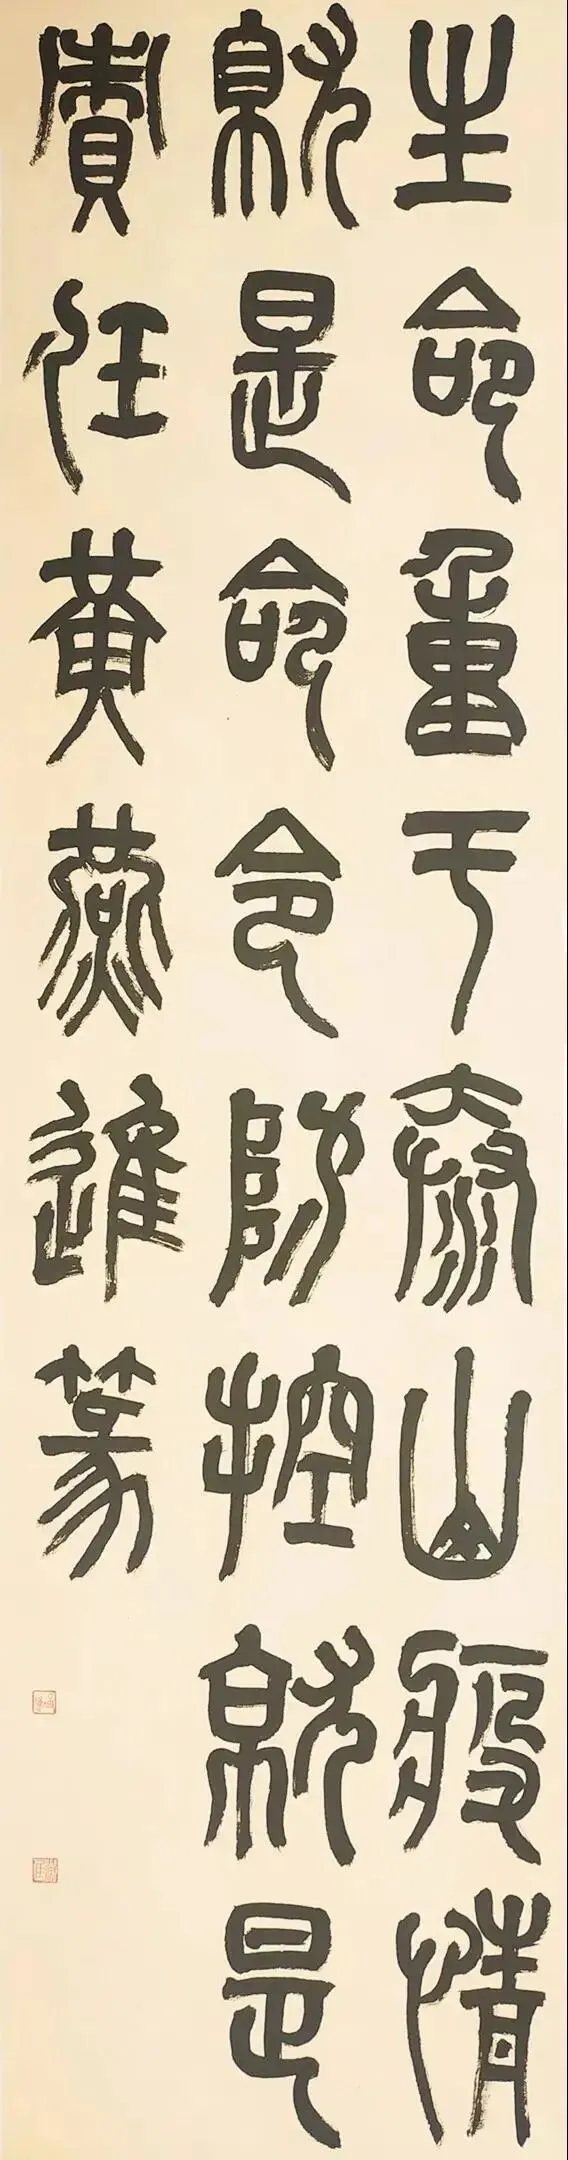 生命重于泰山疫情
就是命令防控就是
責任黄燕進篆